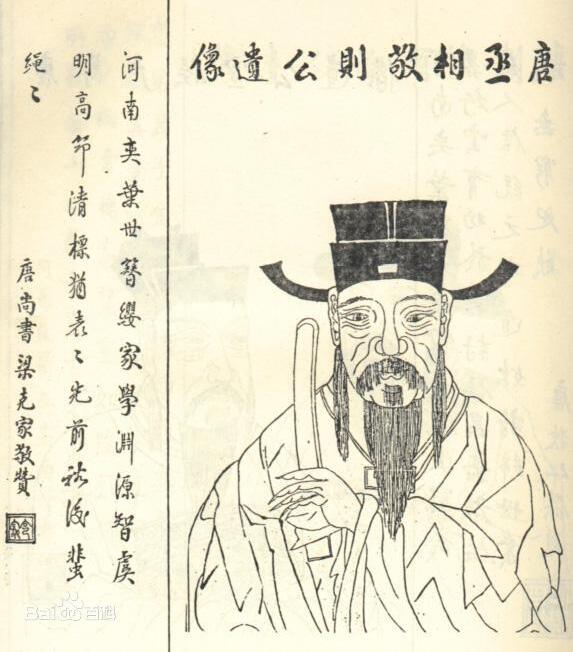 唐丞相敬則公遺像
河南奕葉世簪纓家學淵源智虞
明高節清標猶表〻光前裕後
繩〻
唐尚書梁克家敬贊
Bai百科